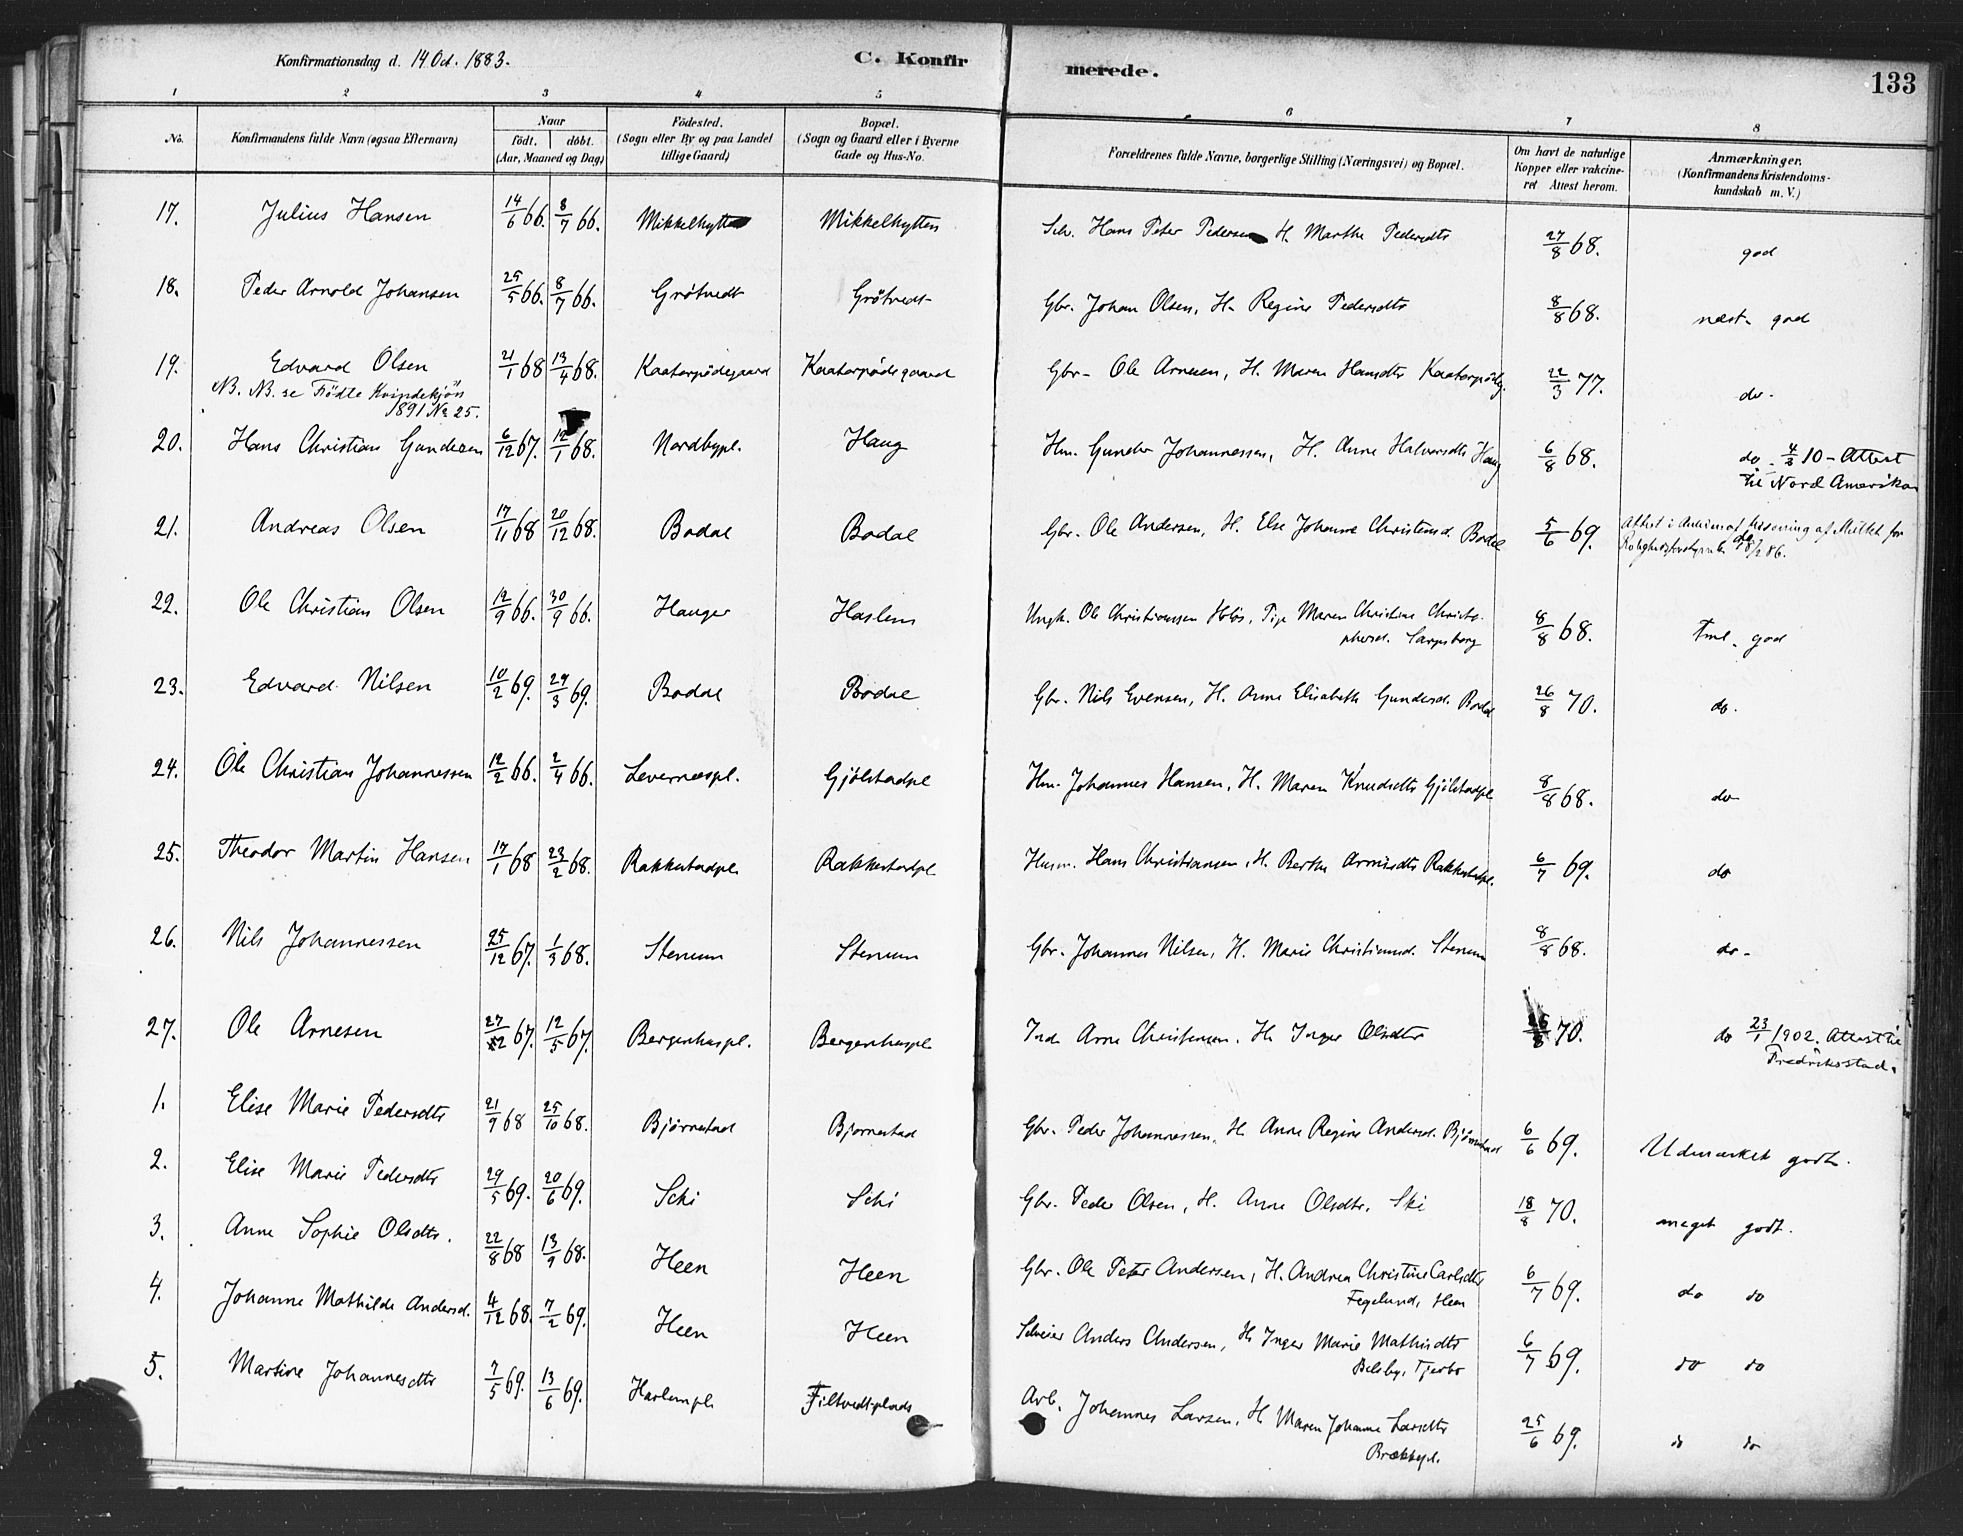 Konfirmationsdag d. 14 Oct. 1883.
C. Konfirmerede.
133
1 2 3 4 5 6 7 8
No. Konfirmandens fulde Navn (ogsaa Efternavn) Naar født. døbt. (Aar, Maaned og Dag) Fødested. (Sogn eller By og paa Landet tillige Gaard) Bopæl. (Sogn og Gaard eller i Byerne Gade og Hus-No. Forældrenes fulde Navne, borgerlige Stilling (Næringsvei) og Bopæl. Om havt de naturlige Kopper eller vakcineret Attest herom. Anmærkninger. (Konfirmandens Kristendomskundskab m. V.)
17. Julius Hansen 14/6 66. 8/7 66. Mikkelhytten Mikkelhytten Selv. Hans Peter Pedersen H. Marthe Pedersdtr 27/8 68. god
18. Peder Arnold Johansen 25/5 66. 8/7 66. Grøtvedt Grøtvedt Gbr. Johan Olsen, H. Regine Pedersdtr 8/8 68. næst. god
19. Edvard Olsen 21/1 68 13/4 68. Kaatorpødegaard Kaatorpødegaard Gbr. Ole Arnesen, H. Maren Hansdtr Kaatorpødeg. 22/3 77. do.
N.B. N.B. se Fødte Kvindekjøn
1891 No 25.
20. Hans Christian Gundersen 6/12 67. 12/1 68. Nordbypl. Haug Hm. Gunder Johannessen, H. Anne Halvorsdtr Haug 6/8 68. do. 4/3 10 - Attest
til Nord Amerika
21. Andreas Olsen 17/11 68 20/12 68. Bodal Bodal Gbr. Ole Andersen, H. Else Johanne Christensd. Bodal 5/6 69. Attest i af Mulkt for
18/2 86.
22. Ole Christian Olsen 12/9 66. 30/9 66. Hauger Haslem Ungk. Ole Christiansen Holøs, Pige Maren Christine Christo-
phersd. Sarpsborg 8/8 68. Tml. god
23. Edvard Nilsen 10/2 69. 29/3 69. Bodal Bodal Gbr. Nils Evensen, H. Anne Elisabeth Gundersd. Bodal 26/8 70. do.
24. Ole Christian Johannessen 12/2 66. 2/4 66. Levernæspl. Gjølstadpl Hm. Johannes Hansen, H. Maren Knudsdtr Gjølstadpl 8/8 68. do
25. Theodor Martin Hansen 17/1 68 23/2 68. Rakkestadpl. Rakkestadpl Husm. Hans Christiansen, H. Berthe Arnesdtr Rakkestadpl. 6/7 69. do
26. Nils Johannessen 25/12 67. 1/3 68. Stenum Stenum Gbr. Johannes Nilsen, H. Marie Christiansd. Stenum 8/8 68. do.
27. Ole Arnesen 27/2 67. 12/5 67. Bergenhuspl. Bergenhuspl Ind. Arne Christensen, H. Inger Olsdtr 26/8 70. do 23/1 1902. Attest til
Fredrikstad.
1. Elise Marie Pedersdtr 21/9 68 25/10 68. Bjørnestad Bjørnestad Gbr. Peder Johannessen, H. Anne Regine Andersd. Bjørnstad 6/6 69. Udmærket godt.
2. Elise Marie Pedersdtr 29/5 69. 20/6 69. Schi Schi Gbr. Peder Olsen, H. Anne Olsdtr. Ski 18/8 70. meget godt.
3. Anne Sophie Olsdtr. 22/8 68 13/9 68. Heen Heen Gbr. Ole Peter Andersen, H. Andrea Christine Carlsdtr
Fegelund, Heen 6/7 69. do do
4. Johanne Mathilde Andersd. 4/12 68. 7/2 69. Heen Heen Selveier Anders Andersen, H. Inger Marie Mathisdtr
Belsby, Tjerbo 6/7 69. do do
5. Martine Johannesdtr 7/5 69. 13/6 69. Haslempl. Filtvedtplads Arb. Johannes Larsen, H. Maren Johanne Larsdtr
Brækkepl. 25/6 69. do do